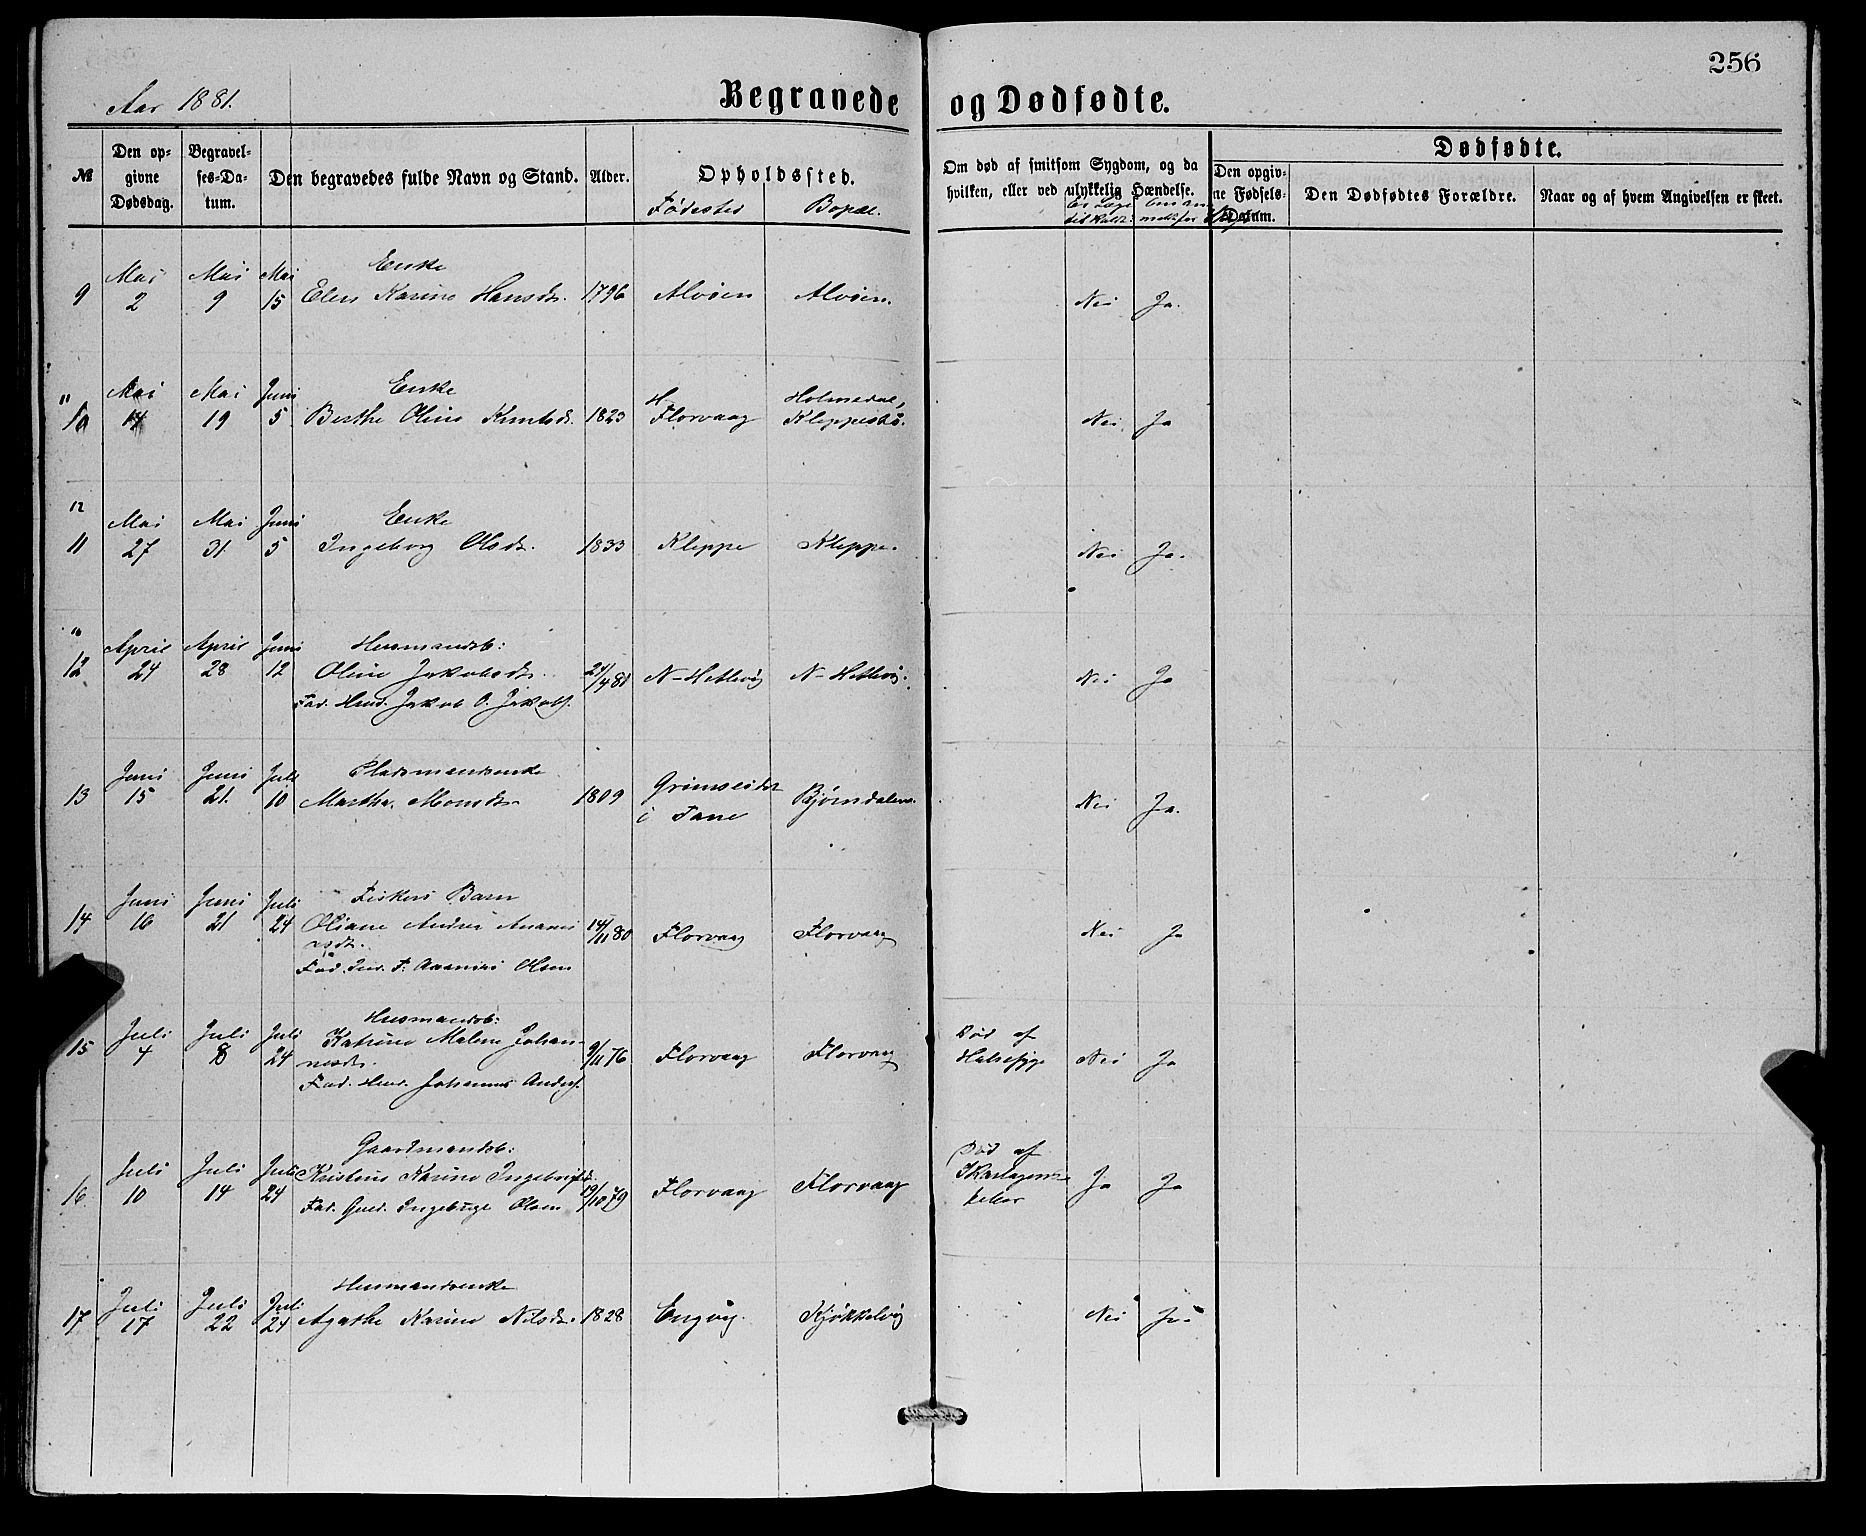 256
Aar 1881.
Begravede og Dødfødte.
№
Den op-
givne
Dødsdag.
Begravel-
ses-Da-
tum.
Den begravedes fulde Navn og Stand.
Alder.
Opholdssted.
Fødested Bopæl.
Om død af smitsom Sygdom, og da
hvilken, eller ved ulykkelig Hændelse.
Er Læge
til Kaldt
Dødfødte.
Den opgiv-
ne Fødsels-
Datum.
Den Dødfødtes Forældre.
Naar og af hvem Angivelsen er skeet.
Mai Mai Mai Enke
9 2 9 15 Elen Karine Hansdr. 1796 Alvøen Alvøen. Nei Ja.
Mai Mai Juni Enke Holmedal,
11
10 14 19 5 Berthe Oline Knutsdr. 1823 H. Florvaag Kleppestø. Nei. Ja
12
Mai Mai Juni Enke
11 27 31. 5 Ingeborg Olsdr. 1833 Kleppe Kleppe. Nei Ja.
10
April April Juni Husmandsb:
12 24 28 12 Oline Jakobsdr. 21/4 81 N-Hetlevig N-Hetlevig. Nei Ja
Fad. Husm. Jakob O. Jakobs.
Juni Juni Juli Pladsmandsenke
13 15 21. 10 Marthe Monsdr. 1809 Grimseidet Bjørndalen. Nei Ja.
i Fane
Juni Juni Juli Fiskers Barn
14 16 21 24 Oliane Andrea Ananias
nsdr. 14/11 80 Florvaag Florvaag Nei Ja
Fad. Ananias Olsen
Juli Juli Juli Husmandsb:
15 4 8 24 Katrine Malene Johan-
nesdr. 9/11 76 Florvaag Florvaag Død af
Halssyge Nei Ja
Fad. Husm. Johannes Anders.
Juli Juli Juli Gaardmandsb:
16 10 14 24 Kristine Karine Ingebrigtsdr. 19/10 79 Florvaag Florvaag Død af
Skarlagens-
feber Ja Ja
Fad. Gaard. Ingebrigt Olsen
Juli Juli Juli Husmandsenke
17 17 22 24 Agathe Karine Nilsdr. 1828 Engvig. Kjøkkelvig Nei Ja